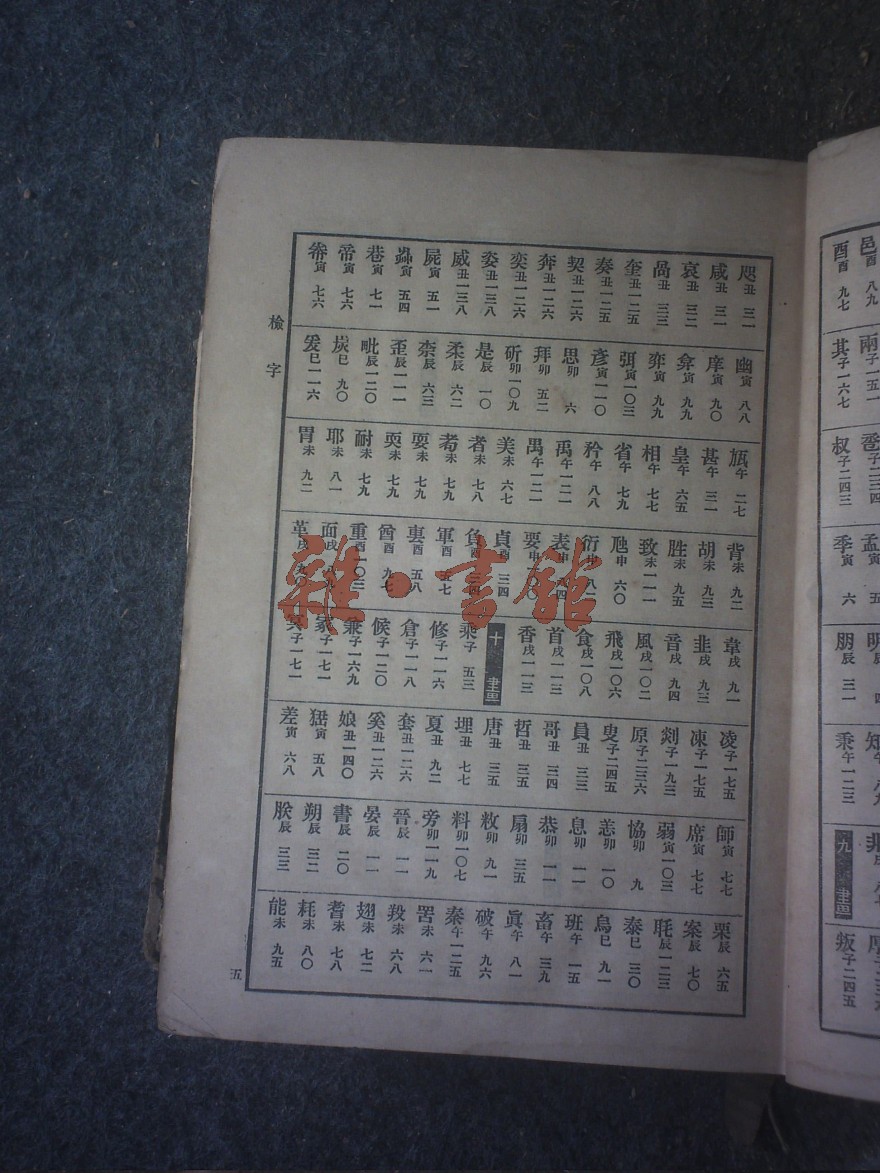 咫丑 三一
咸丑 三一
哀丑 三二
咼丑 三三
奎丑一二五
奏丑一二五
契丑一二六
奔丑一二六
奕丑一二六
姿丑一三八
威丑一三八
屍寅 五一
巷寅 七一
帝寅 七六
幽寅 八八
庠寅 九〇
弇寅 九九
弈寅 九九
弭寅一〇三
彥寅一一〇
思卯 六
拜卯 五二
斫卯一〇九
是辰 一〇
柔辰 六二
柰辰 六三
歪辰一一一
毗辰一二〇
炭巳 九〇
爰巳一一六
瓬午 二七
甚午 三一
皇午 六五
相午 七七
省午 七九
矜午 八八
禹午一二一
禺午一二一
美未 六七
者未 七八
耇未 七九
耍未 七九
耎未 七九
耐未 七九
耶未 八一
胃未 九二
背未 九二
胡未 九三
胜未 九五
致未一一一
虺申 六〇
衍申 八二
表申 八四
要申一〇〇
貞酉 三四
負酉 三四
軍酉 五七
酋酉 九七
重酉一〇三
面戌
革戌 九〇
韋戌 九一
韭戌 九三
音戌 九四
風戌一〇二
飛戌一〇六
食戌一〇八
首戌一一三
香戌一一三
十畫
乘子 五三
修子一一六
倉子一一八
候子一二〇
兼子一六九
冢子一七一
冥子一七一
凌子一七五
凍子一七五
剡子一九三
原子二三六
叟子二四五
員丑 三三
哥丑 三四
哲丑 三五
唐丑 三五
埋丑 七七
夏丑 九二
套丑一二六
奚丑一二六
娘丑一四〇
差寅 六八
師寅 七七
席寅 七七
弱寅一〇三
協卯 九
恙卯 一〇
息卯 一一
恭卯 一一
扇卯 三五
敉卯 九一
料卯一〇七
旁卯一一九
晉辰 一一
晏辰 一一
書辰 二〇
朔辰 三二
朕辰 三三
栗辰 六五
案辰 七〇
毦辰一二三
泰巳 三〇
烏巳 九一
班午 一五
畜午 三九
眞午 八一
破午 九六
秦午一二五
罟未 六一
羖未 六八
翅未 七二
耆未 七八
耗未 八〇
能未 九五
檢字
五
雜·書館
邑酉 八九
酉酉 九七
兩子一五一
其子一六七
叔子二四三
孟寅 五
季寅 六
明辰
朋辰 三一
秉午一二三
九畫
叛子二四五